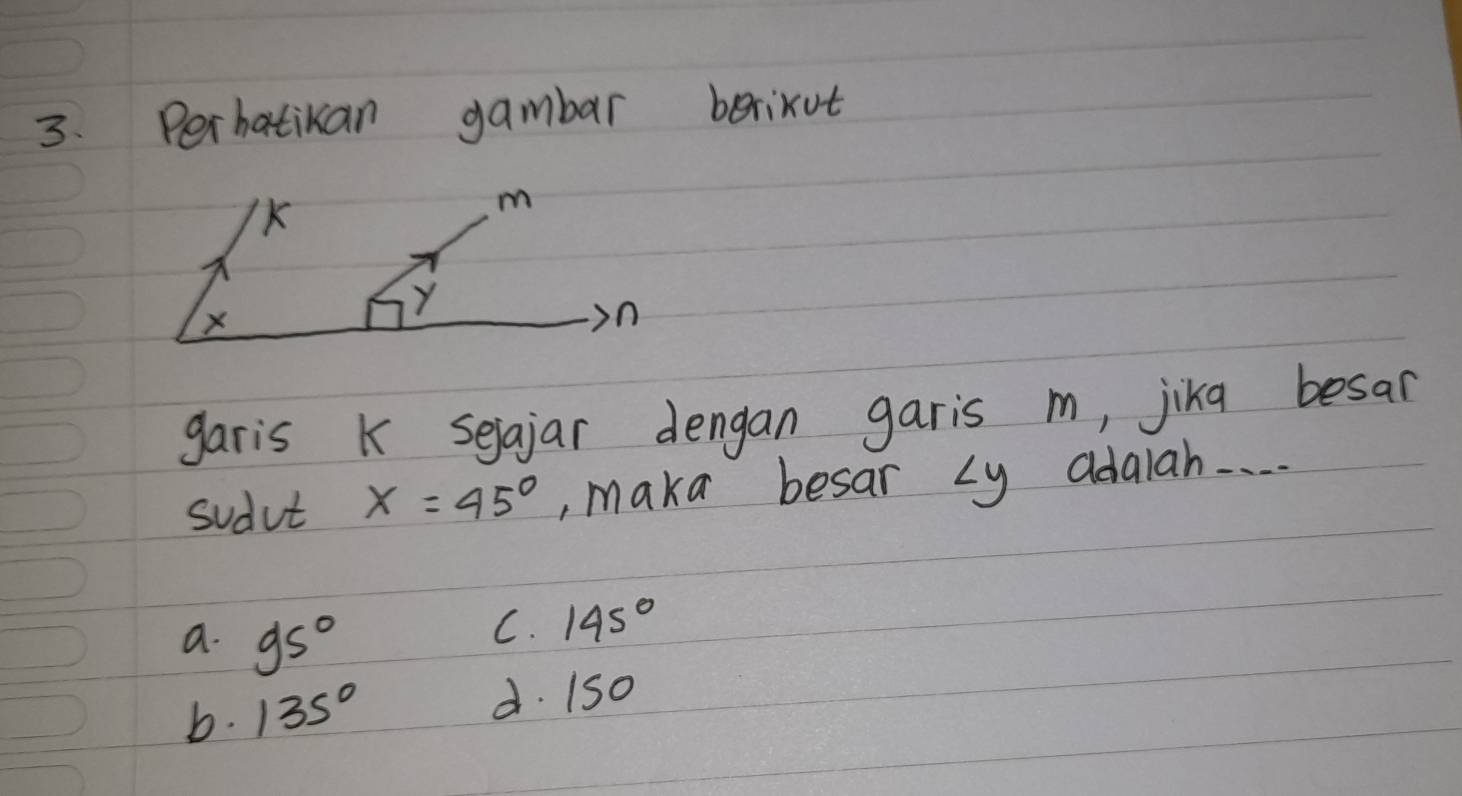 3. Perhatikan gambar berikut
k m
x y
n
garis k sejajar dengan garis m, jika besar
sudut x = 45°, maka besar <y adalah....
a. 95° c. 145°
b. 135° d. 150